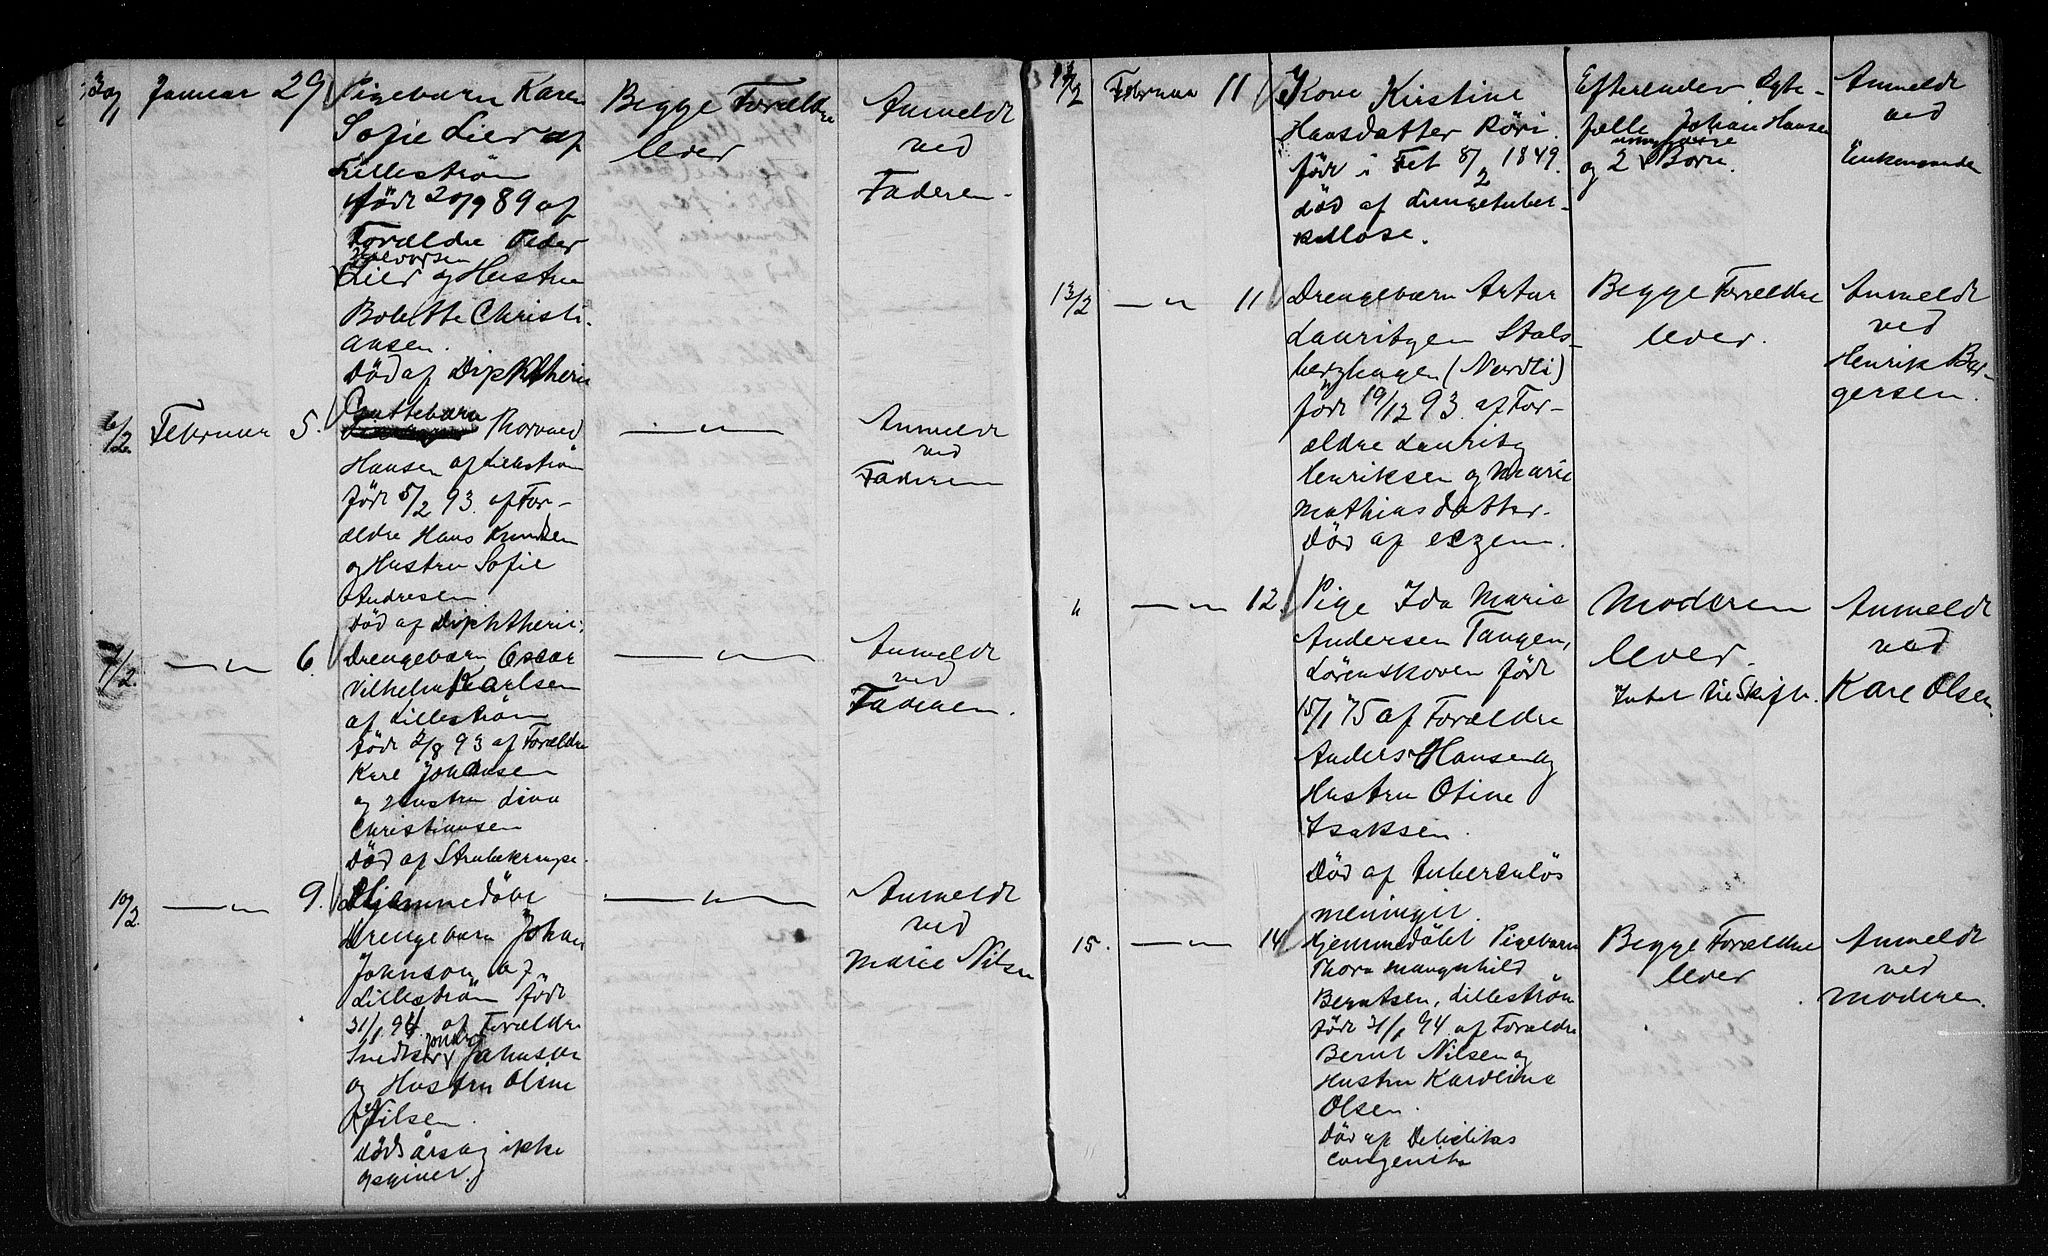 30/1 Januar 29. Pigebarn Karen
Sofie Lier af
Lillestrøm
født 20/9 89 af
Forældre Peder
Halvorsen
Lier og Hustru
Bolette Christi-
ansen.
Død af Diphtheri
Begge Forældre
lever
Anmeldt
ved
Faderen.
6/2 Februar 5. Guttebarn
Thorvald
Hansen af Lillestrøm
født 5/2 93. af For-
ældre Hans Knudsen
og Hustru Sofie
Andresen
Død af Diphtherie.
— " —
Anmeldt
ved
Faderen
7/2. — " — 6. Drengebarn Oscar
Vilhelm Karlsen
af Lillestrøm
født 2/8 93 af Forældre
Karl Johansen
og Hustru Lina
Christiansen
Død af Strubekrupe.
— " —
Anmeldt
ved
Faderen.
10/2 — " — 9. Hjemmedøbt
Drengebarn Johan
Johnson af
Lillestrøm født
31/1. 94. af Forældre
Snedker Johnson
og Hustru Oline
Nilsen.
dødsårsag ikke
opgivet.
— " —
Anmeldt
ved
Marie Nilsen
12/2 Februar 11 Kone Kirstine
Hansdatter Röri.
født i Fet 8/2 1849.
død af Lungetuber-
kellose.
Efterlader Ægte-
fælle Johan Hansen
umyndige
og 2 Børn.
Anmeldt
ved
Enkemande
13/2 — " — 11 Drengebarn Artur
Lauritzen Stals-
berghagen (Nordli)
født 19/12 93. af For-
ældre Lauritz
Henriksen og Marie
Mathiasdatter.
Død af eczem.
Begge Forældre
lever.
Anmeldt
ved
Henrik Bør-
gersen.
" — " — 12. Pige Ida Marie
Andersen Tangen,
Lørenskoven født
15/1 75 af Forældre
Anders Hansen og
Hustru Otine
Isaksen.
Død af Tuberculøs
meningit.
Moderen
lever.
Intet til Skifte.
Anmeldt
ved
Kare Olsen.
15. — " — 14 Hjemmedøbt Pigebarn
Thora Mangnhild
Berntsen, Lillestrøm
født 31/1 94. af Forældre
Bernt Nilsen og
Hustru Karoline
Olsen.
Død af Debilitas
congenita
Begge Forældre
lever
Anmeldt
ved
Moderen.